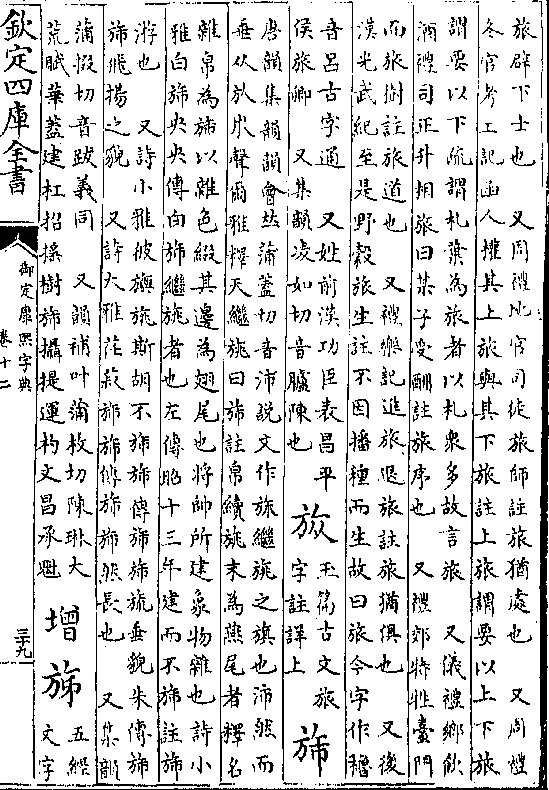 旅辟下士也　又周禮地官司徒旅師註旅猶處也　又周禮
冬官考工記函人權其上旅與其下旅註上旅謂要以上下旅
謂要以下疏謂札葉為旅者以札衆多故言旅　又儀禮鄉飲
酒禮司正升相旅曰某子受酬註旅序也　又禮郊特牲臺門
而旅樹註旅道也　又禮樂記進旅退旅註旅猶俱也　又後
漢光武紀至是野穀旅生註不因播種而生故曰旅今字作穭
音呂古字通　又姓前漢功臣表昌平
侯旅卿　又集韻凌如切音臚陳也
㫃玉篇古文旅
字註詳上
斾
唐韻集韻韻會𠀤蒲蓋切音沛説文作旆繼旐之旗也沛然而
垂从㫃巿聲爾雅釋天繼旐曰斾註帛續旐末為燕尾者釋名
雜帛為斾以雜色綴其邊為翅尾也將帥所建象物雜也詩小
雅白斾央央傳白斾繼旐者也左傳昭十三年建而不斾註斾
游也　又詩小雅彼旟旐斯胡不斾斾傳斾斾旒垂貌朱傳斾
斾飛揚之貌　又詩大雅荏菽斾斾傳斾斾然長也　又集韻
蒲撥切音跋義同　又韻補叶蒲枚切陳琳大
荒賦華蓋建杠招搖樹斾攝提運杓文昌承魁
增斾五經
文字
欽定四庫全書
御定康熙字典
卷十二
三十九